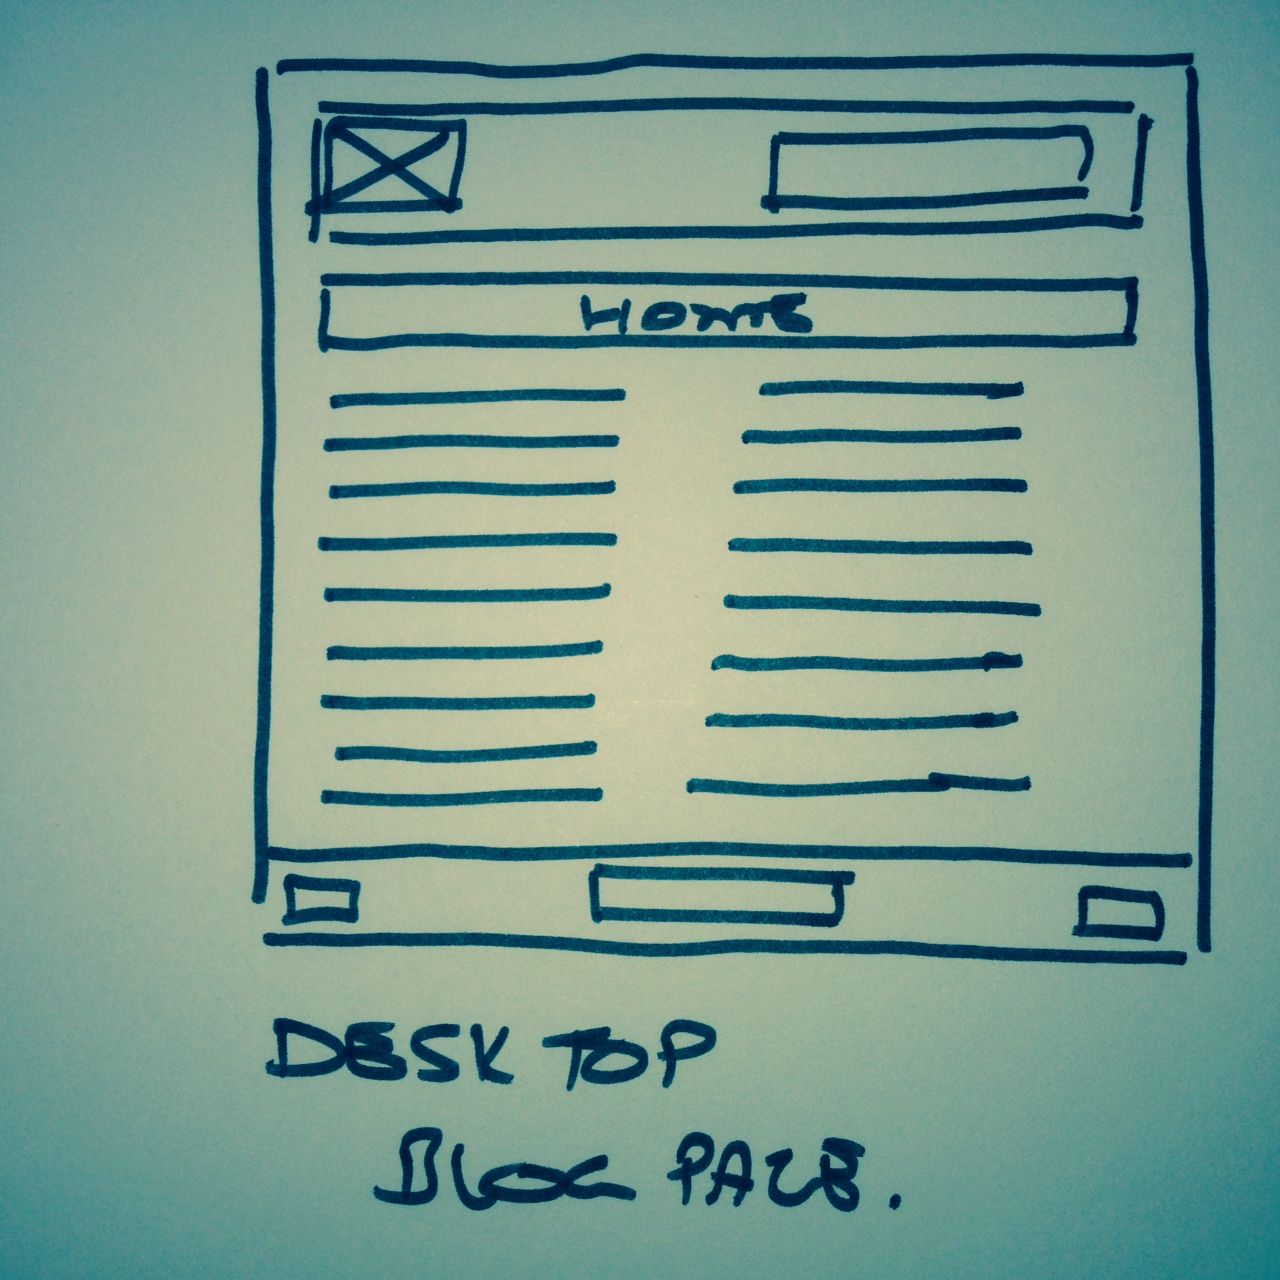 HOME
DESKTOP
BLOG PAGE.